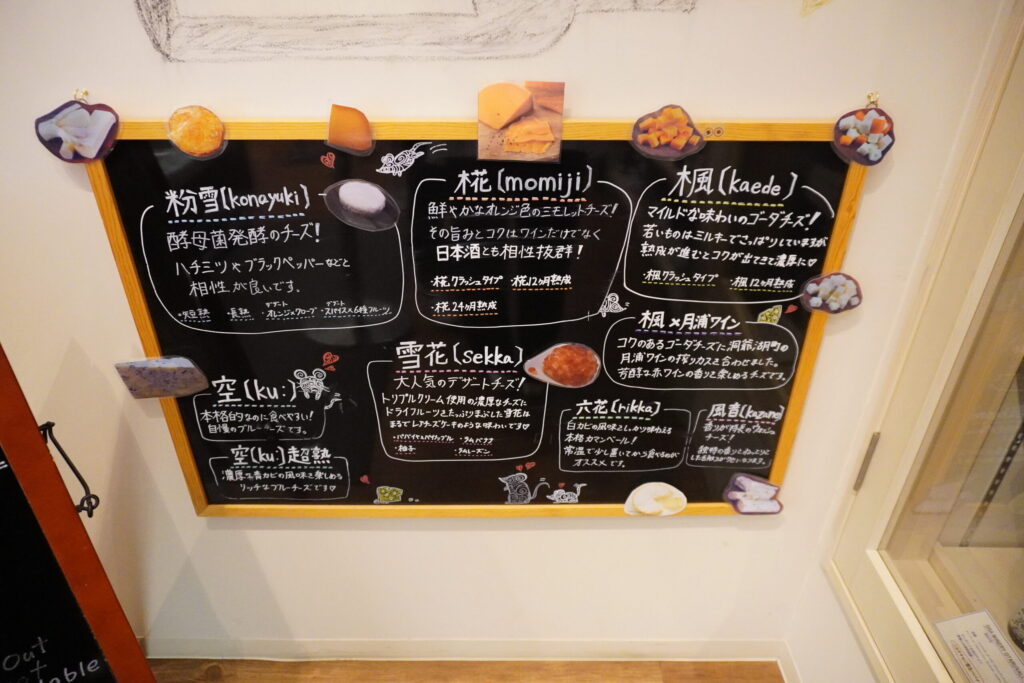 粉雪(konayuki)
酵母菌発酵のチーズ!
ハチミツやブラックペッパーなどと
相性が良いです。
・短熟 ・長熟 ・デザートオレンジ×クローブ ・デザートスパイス&6種フルーツ
椛(momiji)
鮮やかなオレンジ色のミモレットチーズ!
その旨みとコクはワインだけでなく
日本酒とも相性抜群!
・椛クラッシュタイプ ・椛12ヶ月熟成
・椛24ヶ月熟成
楓(kaede)
マイルドな味わいのゴーダチーズ!
若いものはミルキーでさっぱりしていますが
熟成が進むとコクが出てきて濃厚に♡
・楓クラッシュタイプ ・楓12ヶ月熟成
楓×月浦ワイン
コクのあるゴーダチーズに洞爺湖町の
月浦ワインの搾りカスを合わせました。
芳醇な赤ワインの香りを楽しめるチーズです。
空(ku:)
本格的なのに食べやすい!
自慢のブルーチーズです。
空(ku:)超熟
濃厚な青カビの風味を楽しめる
リッチなブルーチーズです♡
雪花(sekka)
大人気のデザートチーズ!
トリプルクリーム使用の濃厚なチーズに
ドライフルーツをたっぷりまぶした雪花は
まるでレアチーズケーキのような味わいです♡
・パパイヤ&パイナップル ・ラムバナナ
・柚子 ・ラムレーズン
六花(rikka)
白カビの風味をしっかり味わえる
本格カマンベール!
常温で少し置いてから食べるのが
オススメです。
風音(kazane)
香りが特徴の
チーズ!
独特の香りと
Out
table